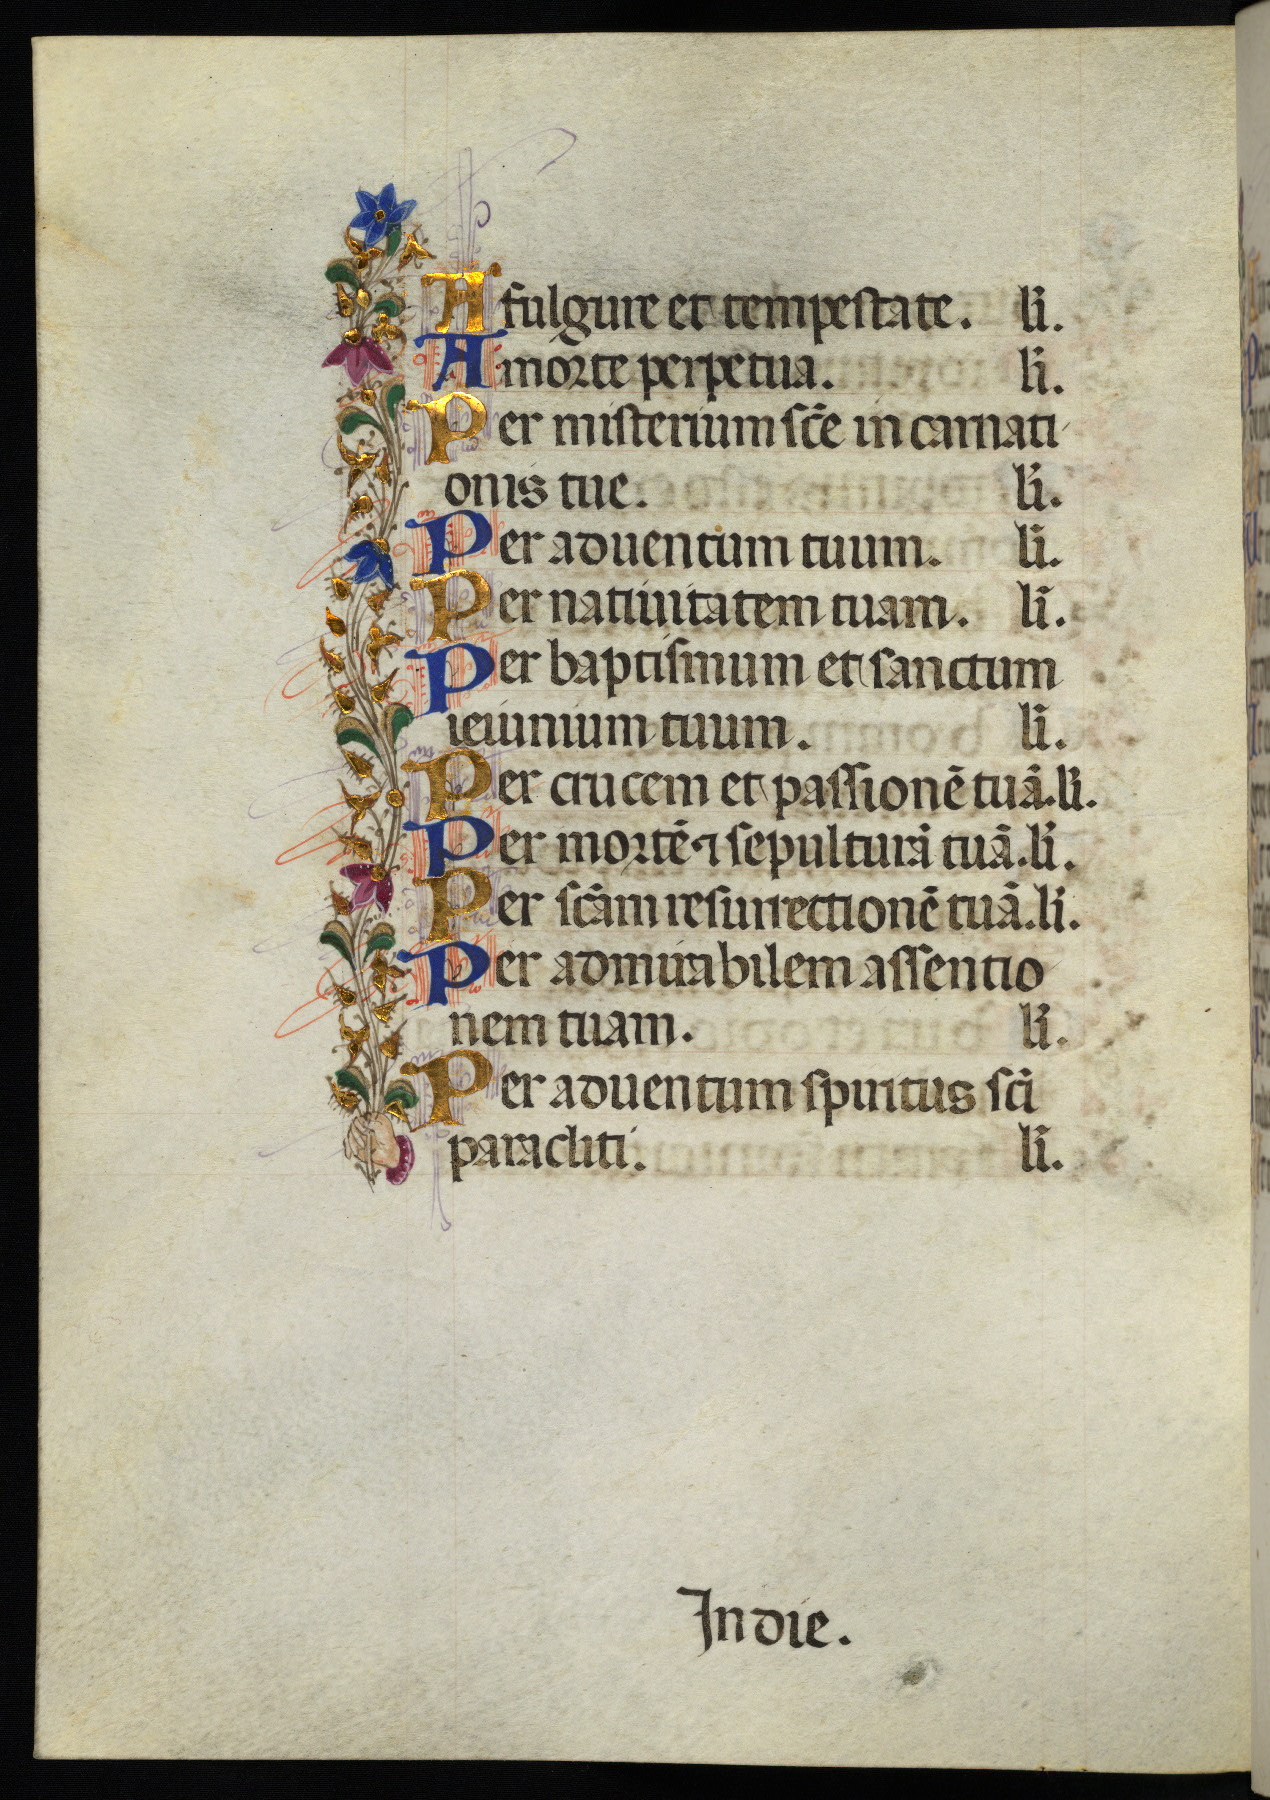 A fulgure et tempestate. li.
A morte perpetua. li.
Per misterium sc̄e in carnati
onis tue. li.
Per aduentum tuum. li.
Per natiuitatem tuam. li.
Per baptismum et sanctum
ieiunium tuum. li.
Per crucem et passionē tuā. li.
Per mortē ⁊ sepulturā tuā. li.
Per sc̄am resurrectionē tuā. li.
Per admirabilem assentio
nem tuam. li.
Per aduentum spiritus sc̄i
paracliti. li.
In die.